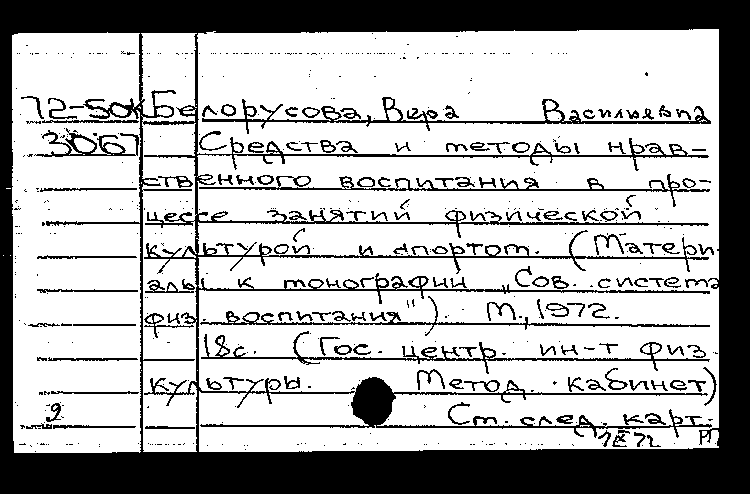 72-50к Белорусова, Вера Васильевна
3067 Средства и методы нрав-
ственного воспитания в про-
цессе занятий физической
культурой и спортом. (Матери-
алы к монографии „Сов. система
физ. воспитания"). М., 1972.
18с. (Гос. центр. ин-т физ.
культуры. Метод. кабинет)
2 Ст. след. карт.